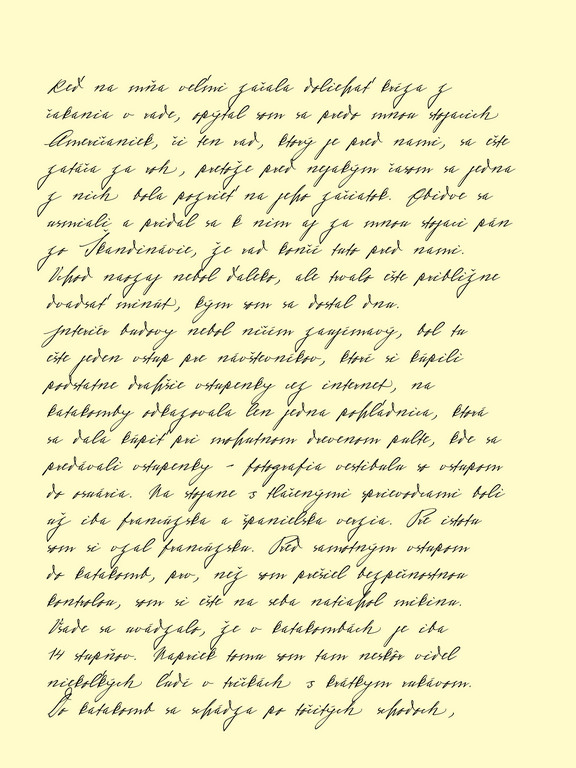 Keď na mňa veľmi začala doliehať kríza z
čakania v rade, opýtal som sa predo mnou stojacich
Američaniek, či ten rad, ktorý je pred nami, sa ešte
zatáča za roh, pretože pred nejakým časom sa jedna
z nich bola pozrieť na jeho začiatok. Obidve sa
usmiali a pridal sa k nim aj za mnou stojaci pán
zo Škandinávie, že rad končí tuto pred nami.
Vchod naozaj nebol ďaleko, ale trvalo ešte približne
dvadsať minút, kým som sa dostal dnu.
Interiér budovy nebol ničím zaujímavý, bol tu
ešte jeden vstup pre návštevníkov, ktorí si kúpili
podstatne drahšie vstupenky cez internet, na
katakomby odkazovala len jedna pohľadnica, ktorá
sa dala kúpiť pri mohutnom drevenom pulte, kde sa
predávali vstupenky - fotografia vestibulu so vstupom
do osuária. Na stojane s tlačenými sprievodcami boli
už iba francúzska a španielska verzia. Pre istotu
som si vzal francúzsku. Pred samotným vstupom
do katakomb, prv, než som prešiel bezpečnostnou
kontrolou, som si ešte na seba natiahol mikinu.
Všade sa uvádzalo, že v katakombách je iba
14 stupňov. Napriek tomu som tam neskôr videl
niekoľkých ľudí v tričkách s krátkym rukávom.
Do katakomb sa schádza po točitých schodoch,